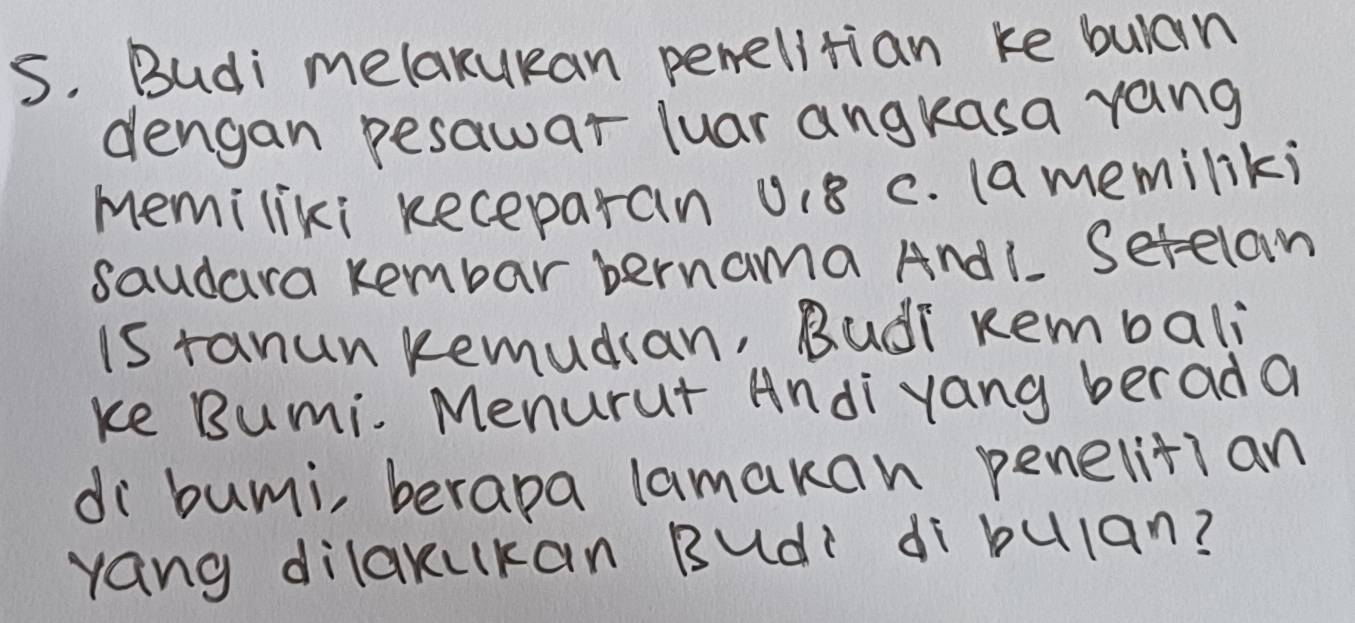 5. Budi melakukan penelitian ke bulan
dengan pesawat luar angkasa yang
Memiliki kecepatan 0,8 c. Ia memiliki
saudara kembar bernama Andi. Setelah
15 tahun kemudian, Budi kembali
ke Bumi. Menurut Andi yang berada
di bumi, berapa lamakah penelitian
yang dilakukan Budi di bulan?